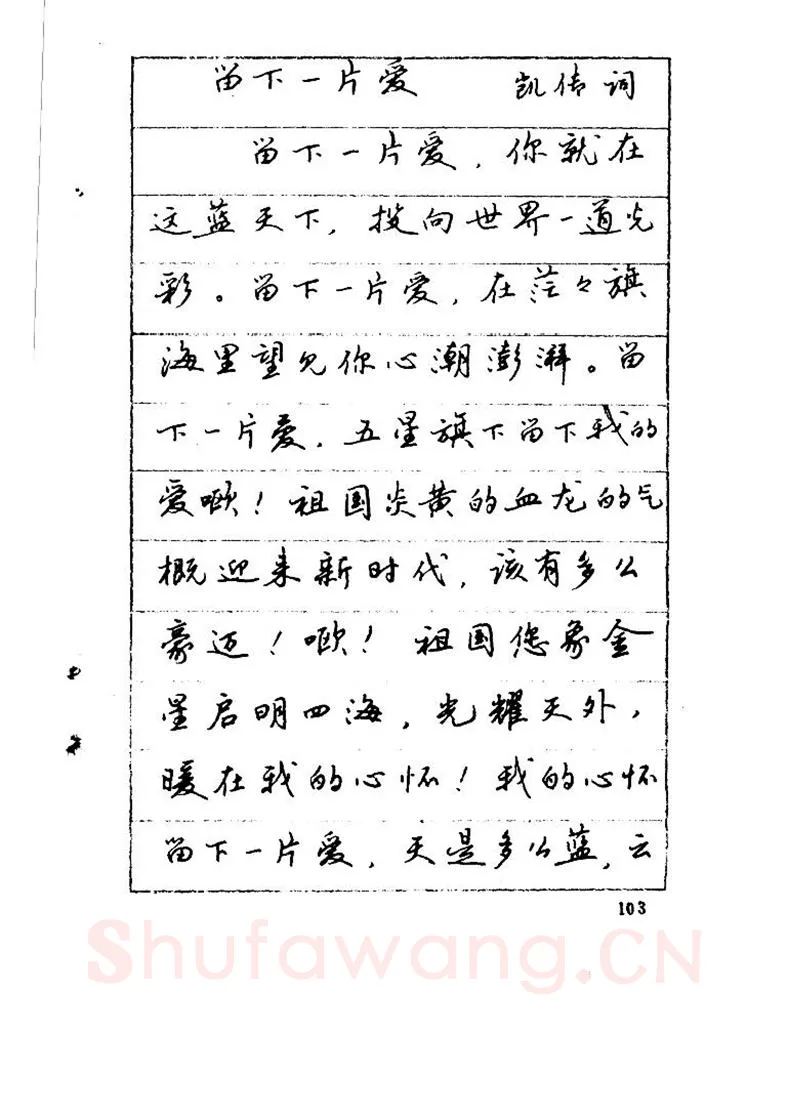 留下一片爱 凯传词
留下一片爱，你就在
这蓝天下，投向世界一道光
彩。留下一片爱，在茫々旗
海里望见你心潮澎湃。留
下一片爱，五星旗下留下我的
爱噢！祖国炎黄的血龙的气
概迎来新时代，该有多么
豪迈！噢！祖国您象金
星启明四海，光耀天外，
暖在我的心怀！我的心怀
留下一片爱，天是多么蓝，云
103
Shufawang.CN